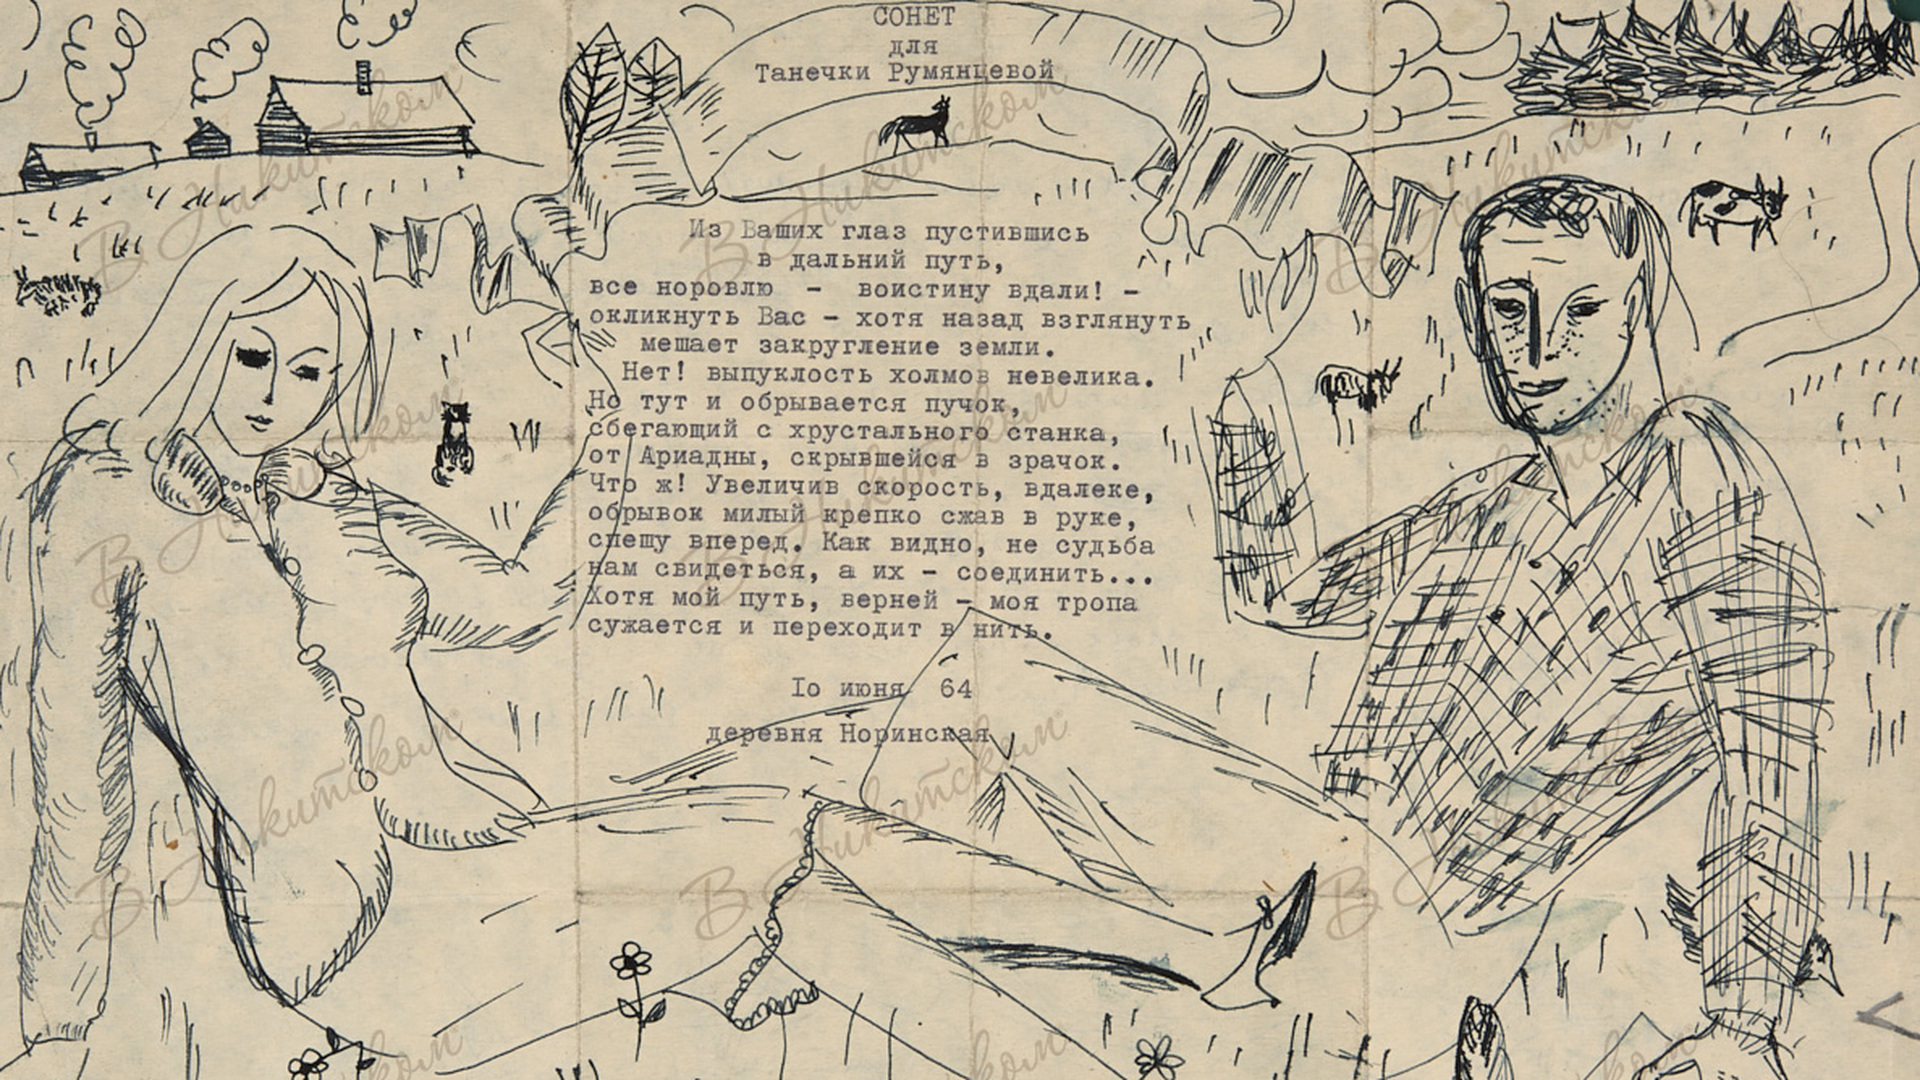 СОНЕТ
для
Танечки Румянцевой
Из Ваших глаз пустившись
в дальний путь,
все норовлю - воистину вдали! -
окликнуть Вас - хотя назад взглянуть
мешает закругление земли.
Нет! выпуклость холмов невелика.
Но тут и обрывается пучок,
сбегающий с хрустального станка,
от Ариадны, скрывшейся в зрачок.
Что ж! Увеличив скорость, вдалеке,
обрывок милый крепко сжав в руке,
спешу вперед. Как видно, не судьба
нам свидеться, а их - соединить...
Хотя мой путь, верней - моя тропа
сужается и переходит в нить.
Iо июня 64
деревня Норинская
В Никитском
В Никитском
В Никитском
В Никитском
В Никитском
В Никитском
В Никитском
В Никитском
В Никитском